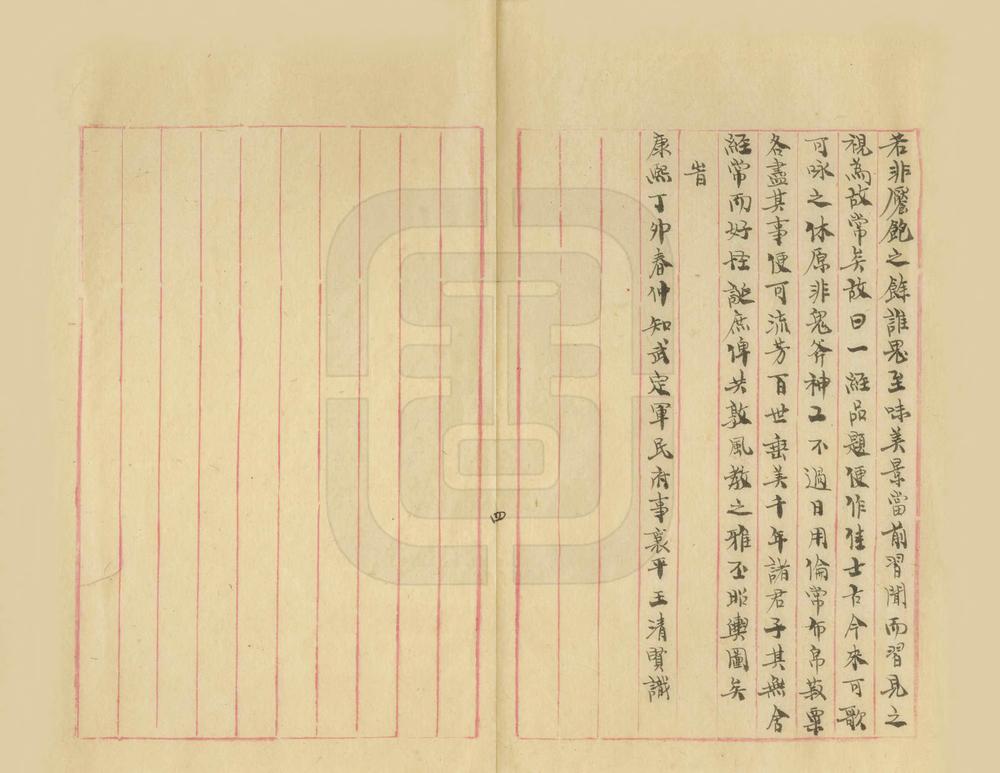 若非饜飽之餘誰思至味美景當前習聞而習見之
視爲故常矣故曰一經品題便作佳士古今來可歌
可咏之休原非鬼斧神工不過日用倫常布帛菽粟
各盡其事便可流芳百世垂美千年諸君子其無舍
經常而好怪誕庶俾共敦風教之雅丕昭輿圖矣
旹
康熙丁卯春仲知武定軍民府事襄平王清賢識
四